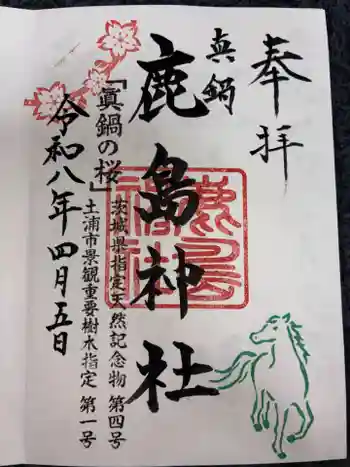 奉拝
真鍋
鹿島神社
「眞鍋の桜」
茨城県指定天然記念物 第四号
土浦市景観重要樹木指定 第一号
令和八年四月五日